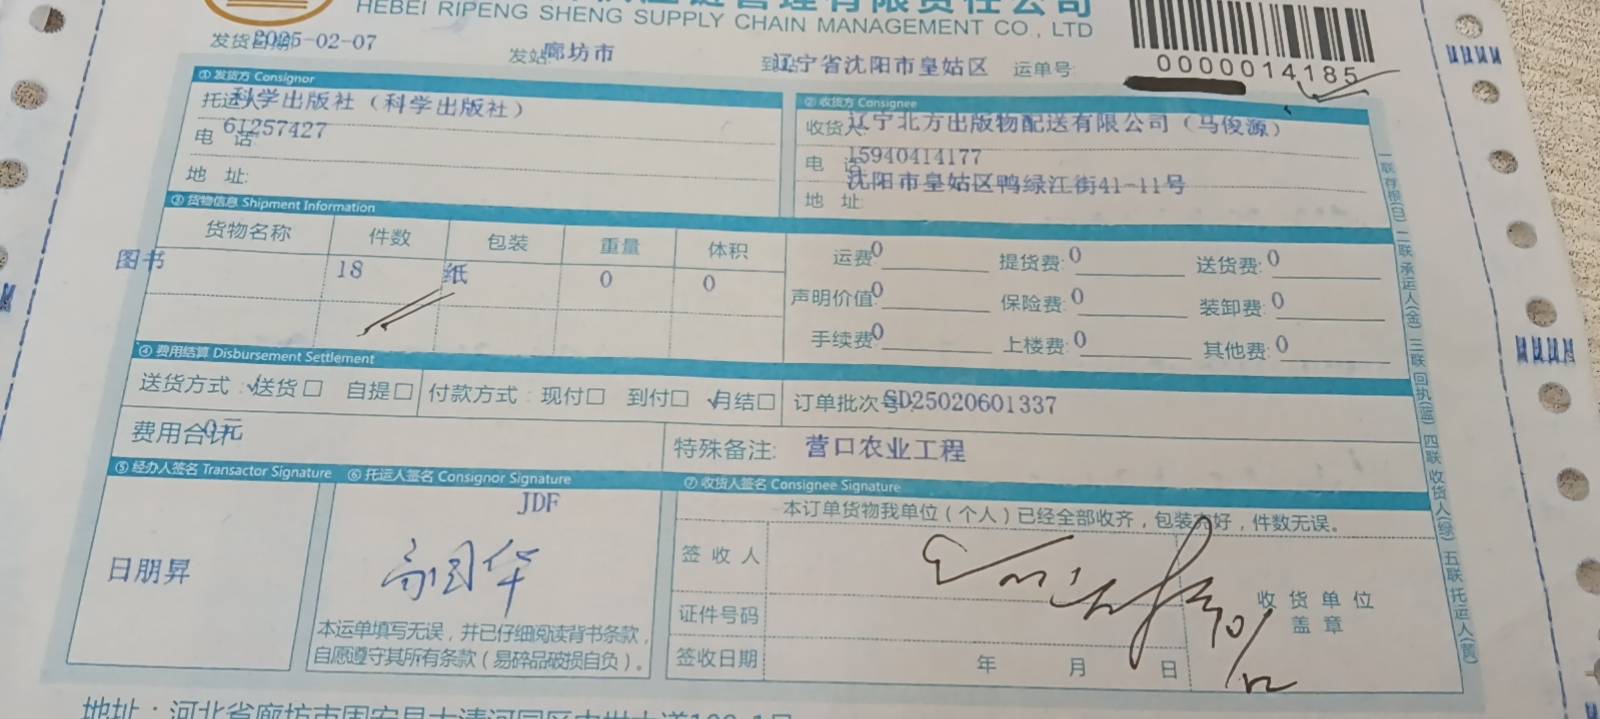 链管理有限责任公司
HEBEI RIPENG SHENG SUPPLY CHAIN MANAGEMENT CO., LTD
发货日期 2025-02-07 发站 廊坊市 到站 辽宁省沈阳市皇姑区 运单号 0000014185
① 发货方 Consignor
托运人 科学出版社（科学出版社）
电 话 61257427
地 址:
② 收货方 Consignee
收货人 辽宁北方出版物配送有限公司（马俊源）
电 话 15940414177
地 址 沈阳市皇姑区鸭绿江街41-11号
③ 货物信息 Shipment Information
货物名称 件数 包装 重量 体积
图书 18 纸 0 0
运费 0 提货费: 0 送货费: 0
声明价值 0 保险费: 0 装卸费: 0
手续费 0 上楼费: 0 其他费: 0
④ 费用结算 Disbursement Settlement
送货方式: √送货□ 自提□ 付款方式: 现付□ 到付□ √月结□ 订单批次号 SD25020601337
费用合计 0元 特殊备注: 营口农业工程
⑤ 经办人签名 Transactor Signature ⑥ 托运人签名 Consignor Signature ⑦ 收货人签名 Consignee Signature
日朋昇
JDF
本运单填写无误，并已仔细阅读背书条款，
自愿遵守其所有条款（易碎品破损自负）。
本订单货物我单位（个人）已经全部收齐，包装完好，件数无误。
签 收 人
证件号码
签收日期 年 月 日
收 货 单 位
盖 章
一联存根(白) 二联承运人(金) 三联回执(蓝) 四联收货人(绿) 五联托运人(黄)